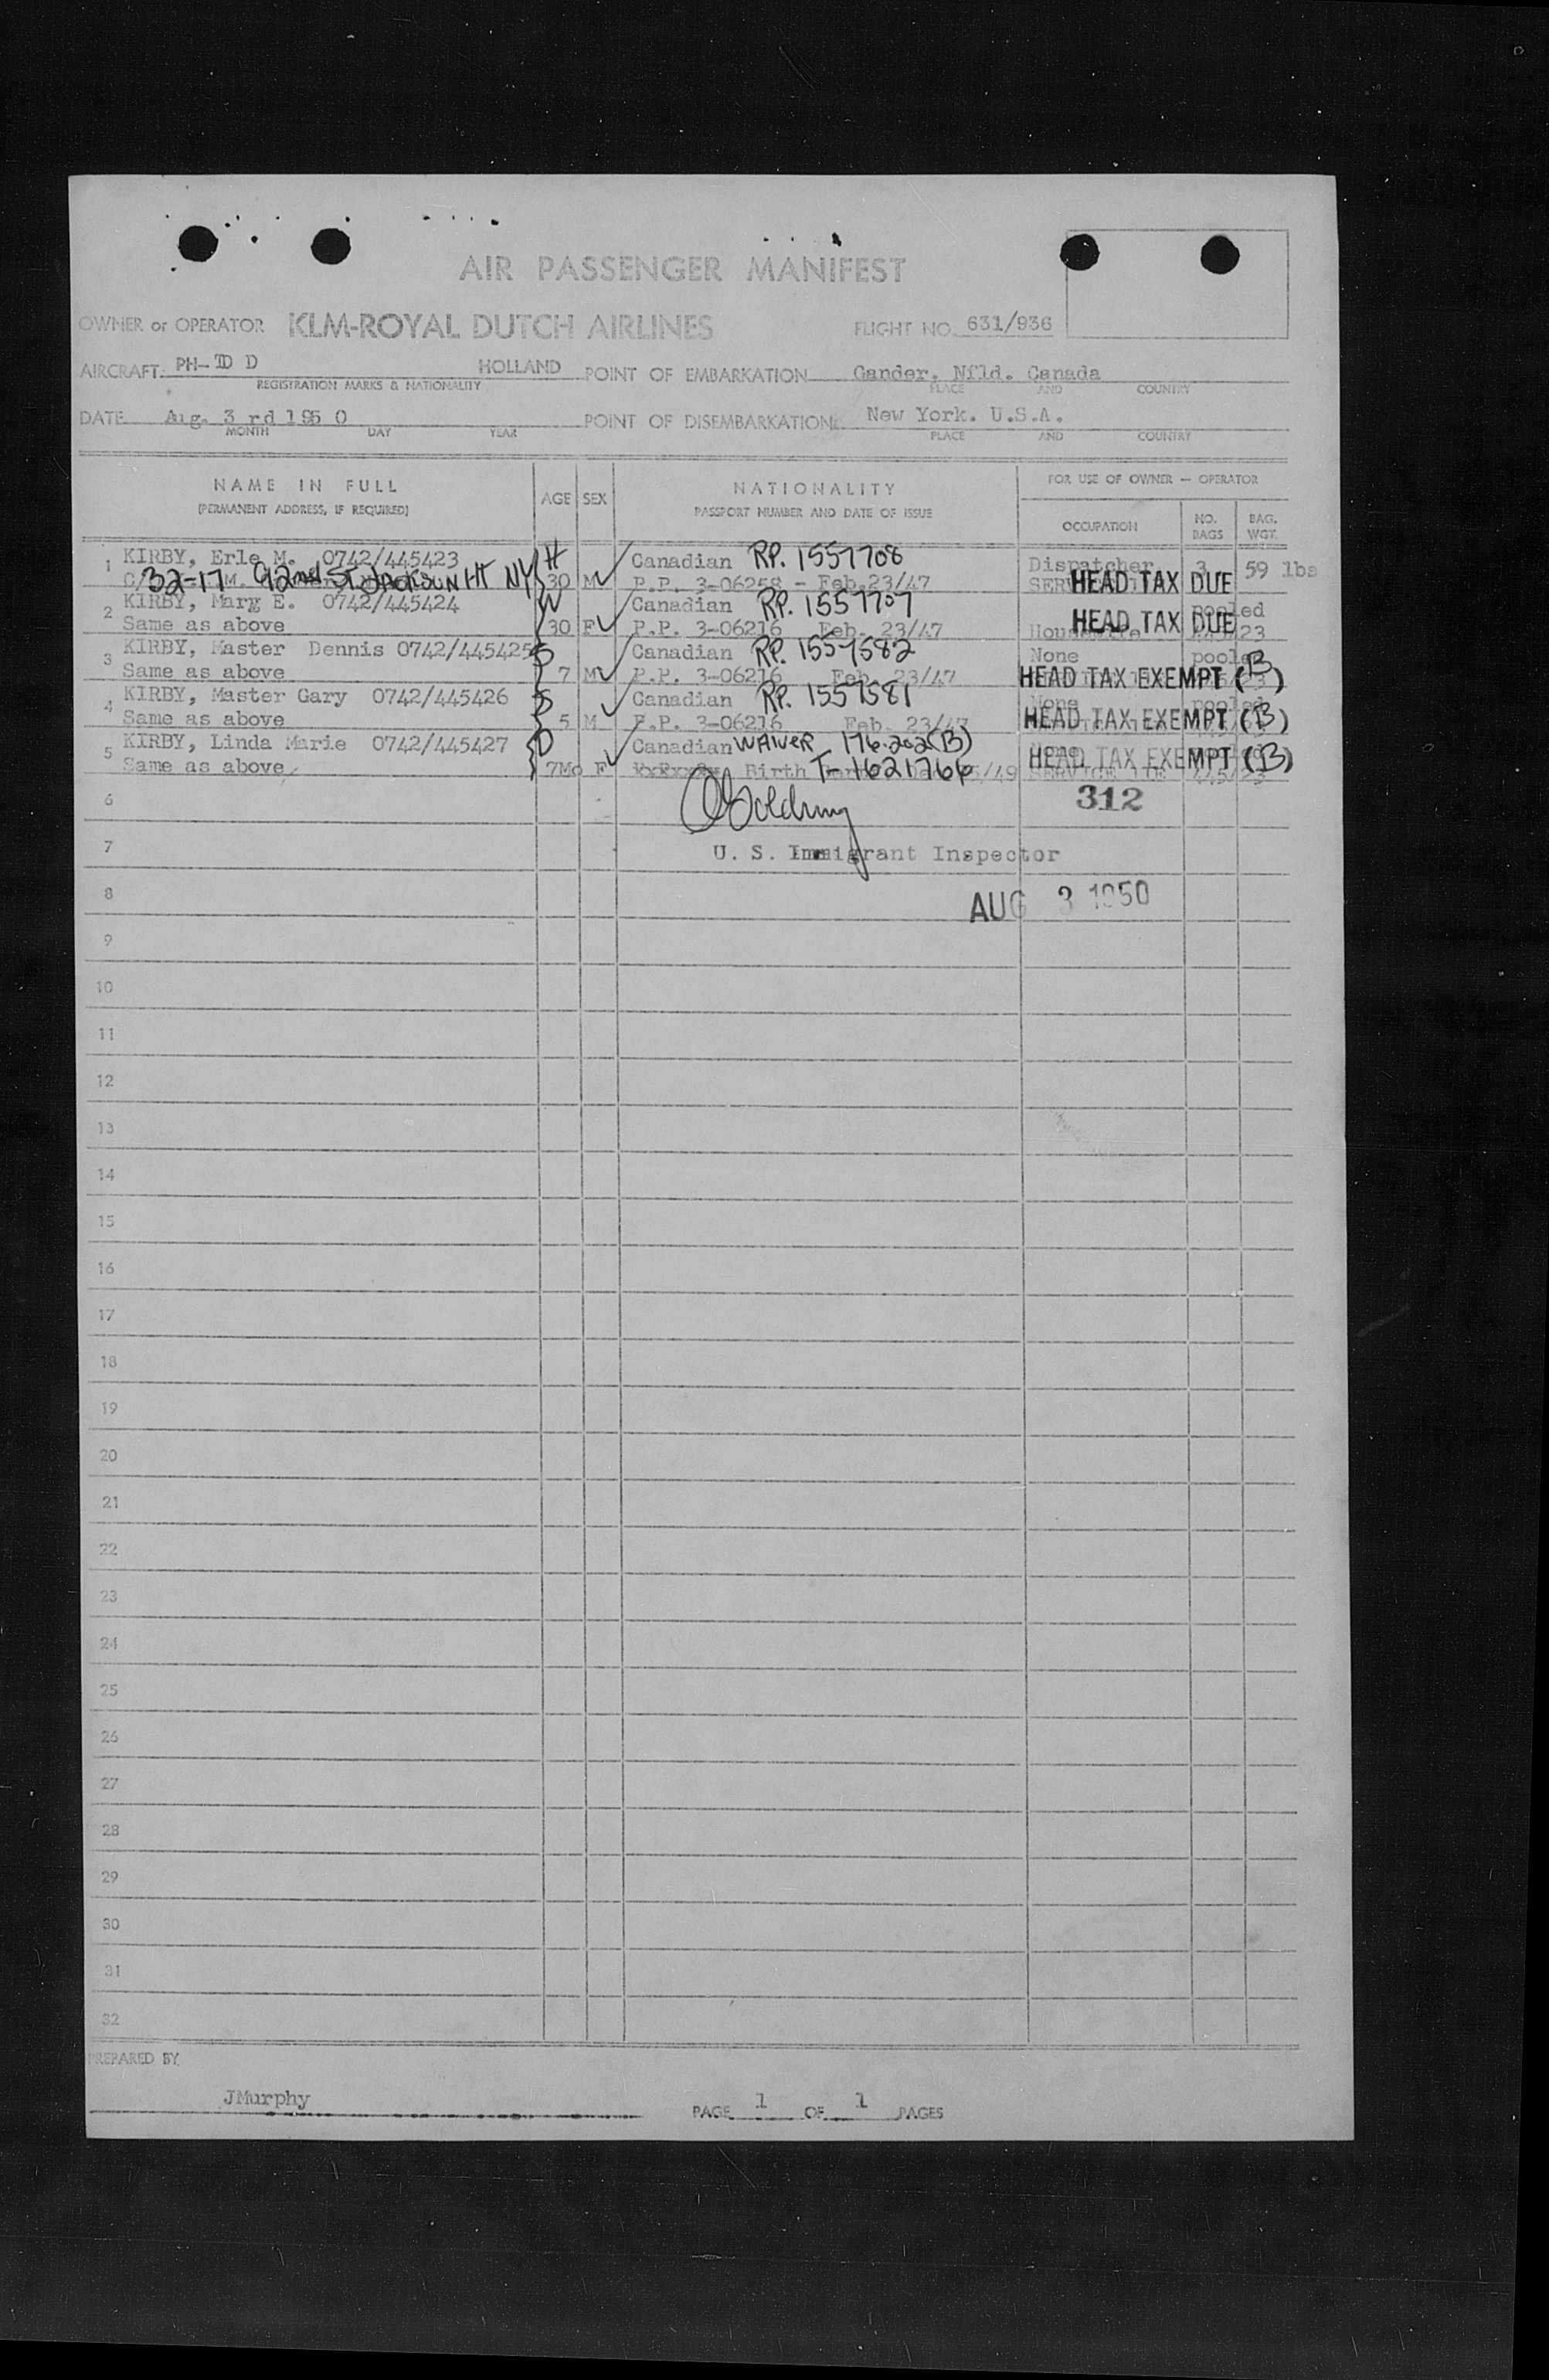 AIR PASSENGER MANIFEST
OWNER or OPERATOR KLM-ROYAL DUTCH AIRLINES FLIGHT NO. 631/936
AIRCRAFT PH-TD D HOLLAND POINT OF EMBARKATION Gander. Nfld. Canada
REGISTRATION MARKS & NATIONALITY PLACE AND COUNTRY
DATE Aug. 3 rd 195 0 POINT OF DISEMBARKATION New York. U.S.A.
MONTH DAY YEAR PLACE AND COUNTRY
NAME IN FULL AGE SEX NATIONALITY FOR USE OF OWNER — OPERATOR
(PERMANENT ADDRESS, IF REQUIRED) PASSPORT NUMBER AND DATE OF ISSUE OCCUPATION NO. BAGS BAG. WGT.
1 KIRBY, Erle M. 0742/445423 H Canadian RP. 1557708 Dispatcher 3 59 lbs
32-17 92nd ST Jackson HT NY 30 M P.P. 3-06258 - Feb. 23/47 HEAD TAX DUE
2 KIRBY, Mary E. 0742/445424 W Canadian RP. 1557707 pooled
Same as above 30 F P.P. 3-06216 Feb. 23/47 Housewife HEAD TAX DUE
3 KIRBY, Master Dennis 0742/445425 S Canadian RP. 1557582 None pooled
Same as above 7 M P.P. 3-06216 Feb. 23/47 HEAD TAX EXEMPT (B)
4 KIRBY, Master Gary 0742/445426 S Canadian RP. 1557581 None pooled
Same as above 5 M P.P. 3-06216 Feb. 23/47 HEAD TAX EXEMPT (B)
5 KIRBY, Linda Marie 0742/445427 D Canadian WAIVER 176.202(B)
Same as above 7Mo F Birth T-1621766 /49 HEAD TAX EXEMPT (B)
6 312
7 U. S. Immigrant Inspector
8 AUG 3 1950
9
10
11
12
13
14
15
16
17
18
19
20
21
22
23
24
25
26
27
28
29
30
31
32
PREPARED BY
JMurphy
PAGE 1 OF 1 PAGES